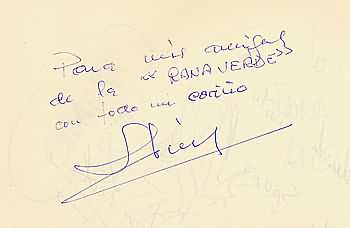 Para mis amigos
de la "RANA VERDE"
con todo mi cariño